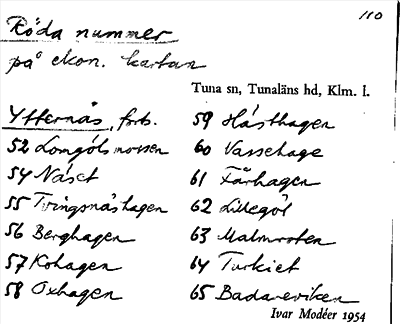 110
Röda nummer
på ekon. kartan
Tuna sn, Tunaläns hd, Klm. l.
Ytternäs, forts.
52 Lomgölsmossen
54 Näset
55 Tvingsnäshagen
56 Berghagen
57 Kohagen
58 Oxhagen
59 Hästhagen
60 Vassehage
61 Fårhagen
62 Lillegöl
63 Malmroten
64 Turkiet
65 Badareviken
Ivar Modéer 1954